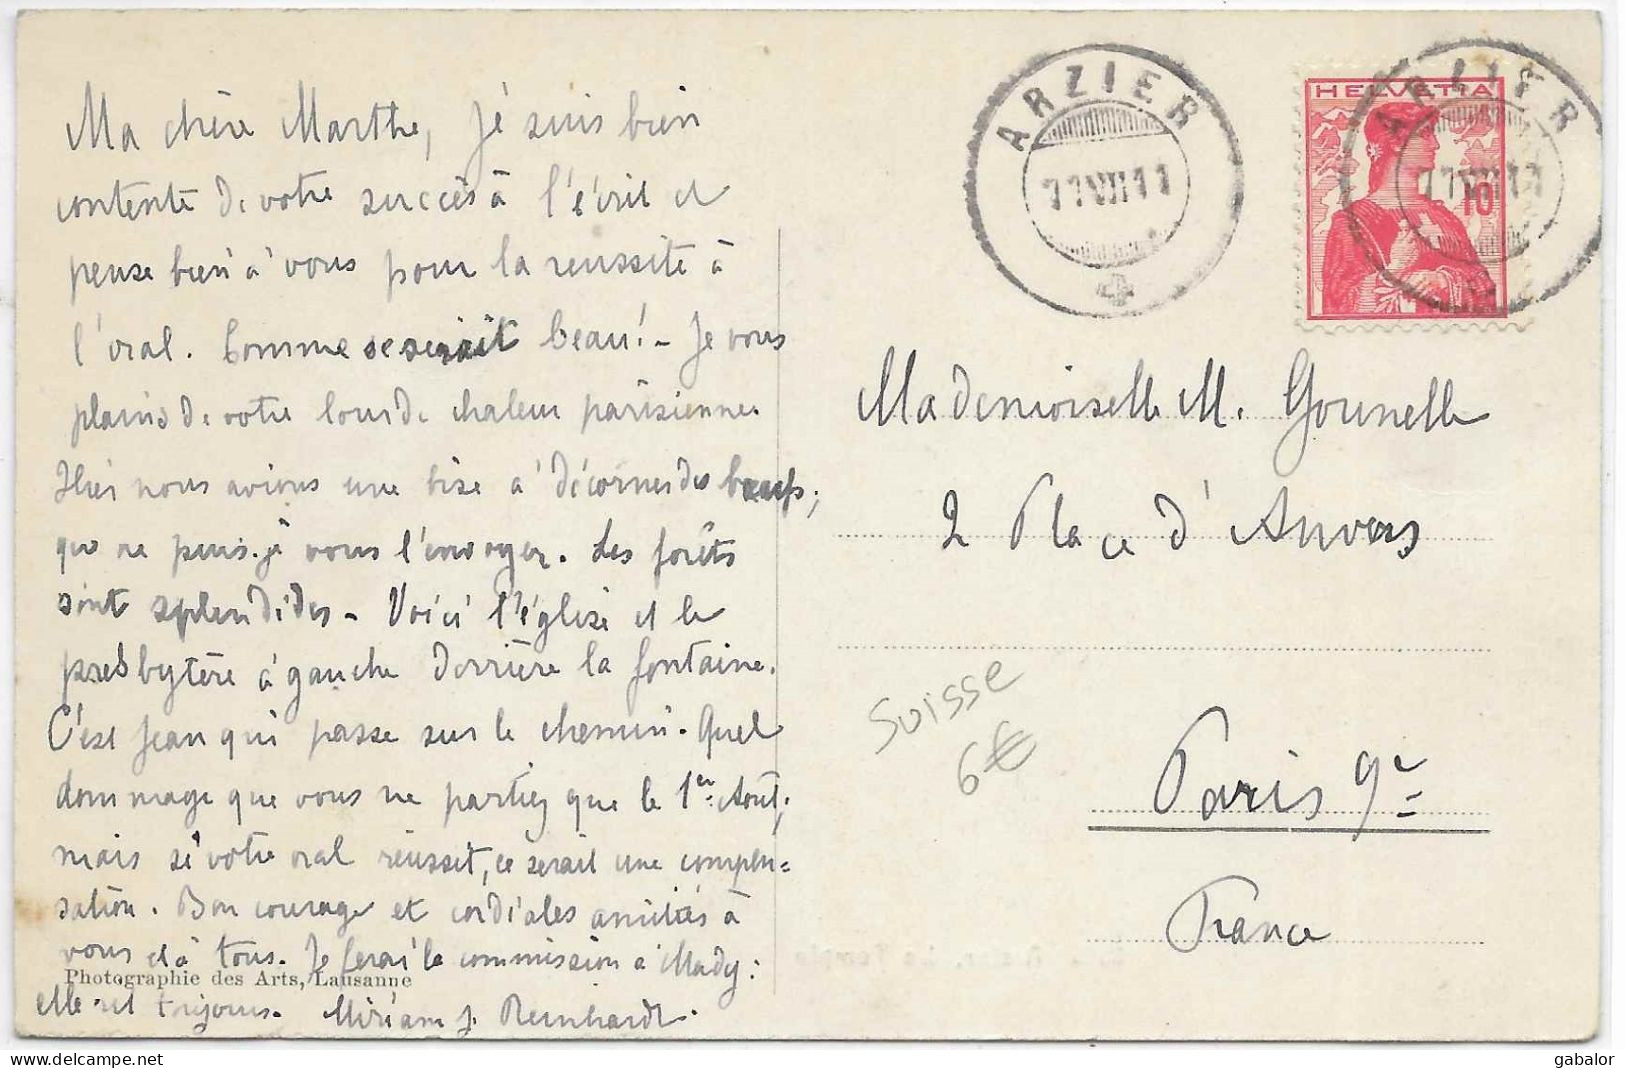 Ma chère Marthe, Je suis bien
contente de votre succès à l'écrit et
pense bien à vous pour la réussite à
l'oral. Comme se serait beau! - Je vous
plains de votre lourde chaleur parisienne.
Hier nous avions une bise à décorner des bœufs;
que ne puis-je vous l'envoyer. Les forêts
sont splendides - Voici l'église et le
presbytère à gauche derrière la fontaine.
C'est Jean qui passe sur le chemin. Quel
dommage que vous ne partiez que le 1er Août;
mais si votre oral réussit, ce serait une compen=
sation. Bon courage et cordiales amitiés à
vous et à tous. Je ferai la commission à Mady:
Photographie des Arts, Lausanne
elle rit toujours. Miriam J. Reinhardt.
ARZIER
11 VII 11
HELVETIA
10
ARZIER
11 VII 11
Mademoiselle M. Gounelle
2 Place d'Anvers
Suisse
6€
Paris 9e
France
gabalor